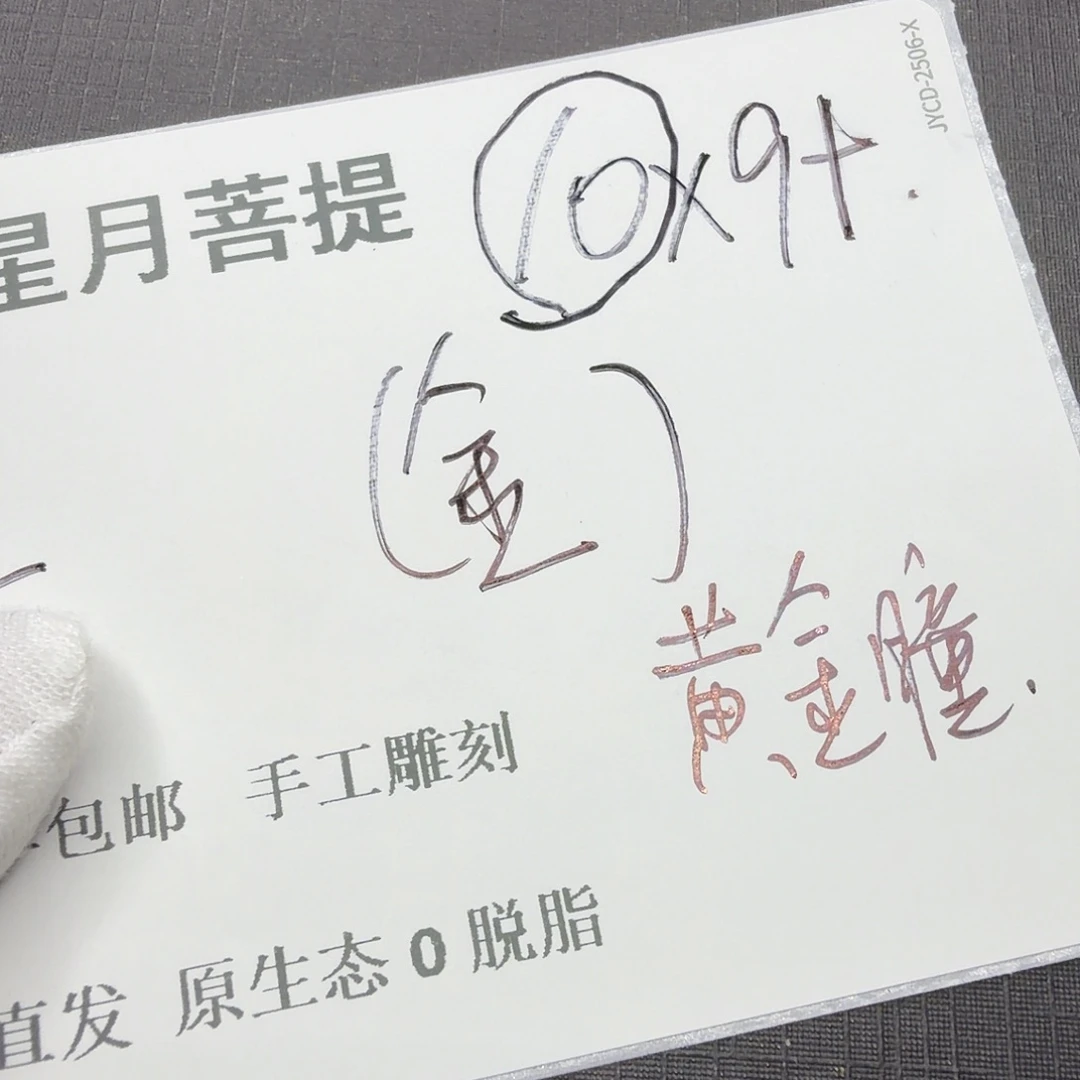 JYCD-2506-X
星月菩提
10x9+
(金)
黄金瞳.
包邮 手工雕刻
直发 原生态 0 脱脂